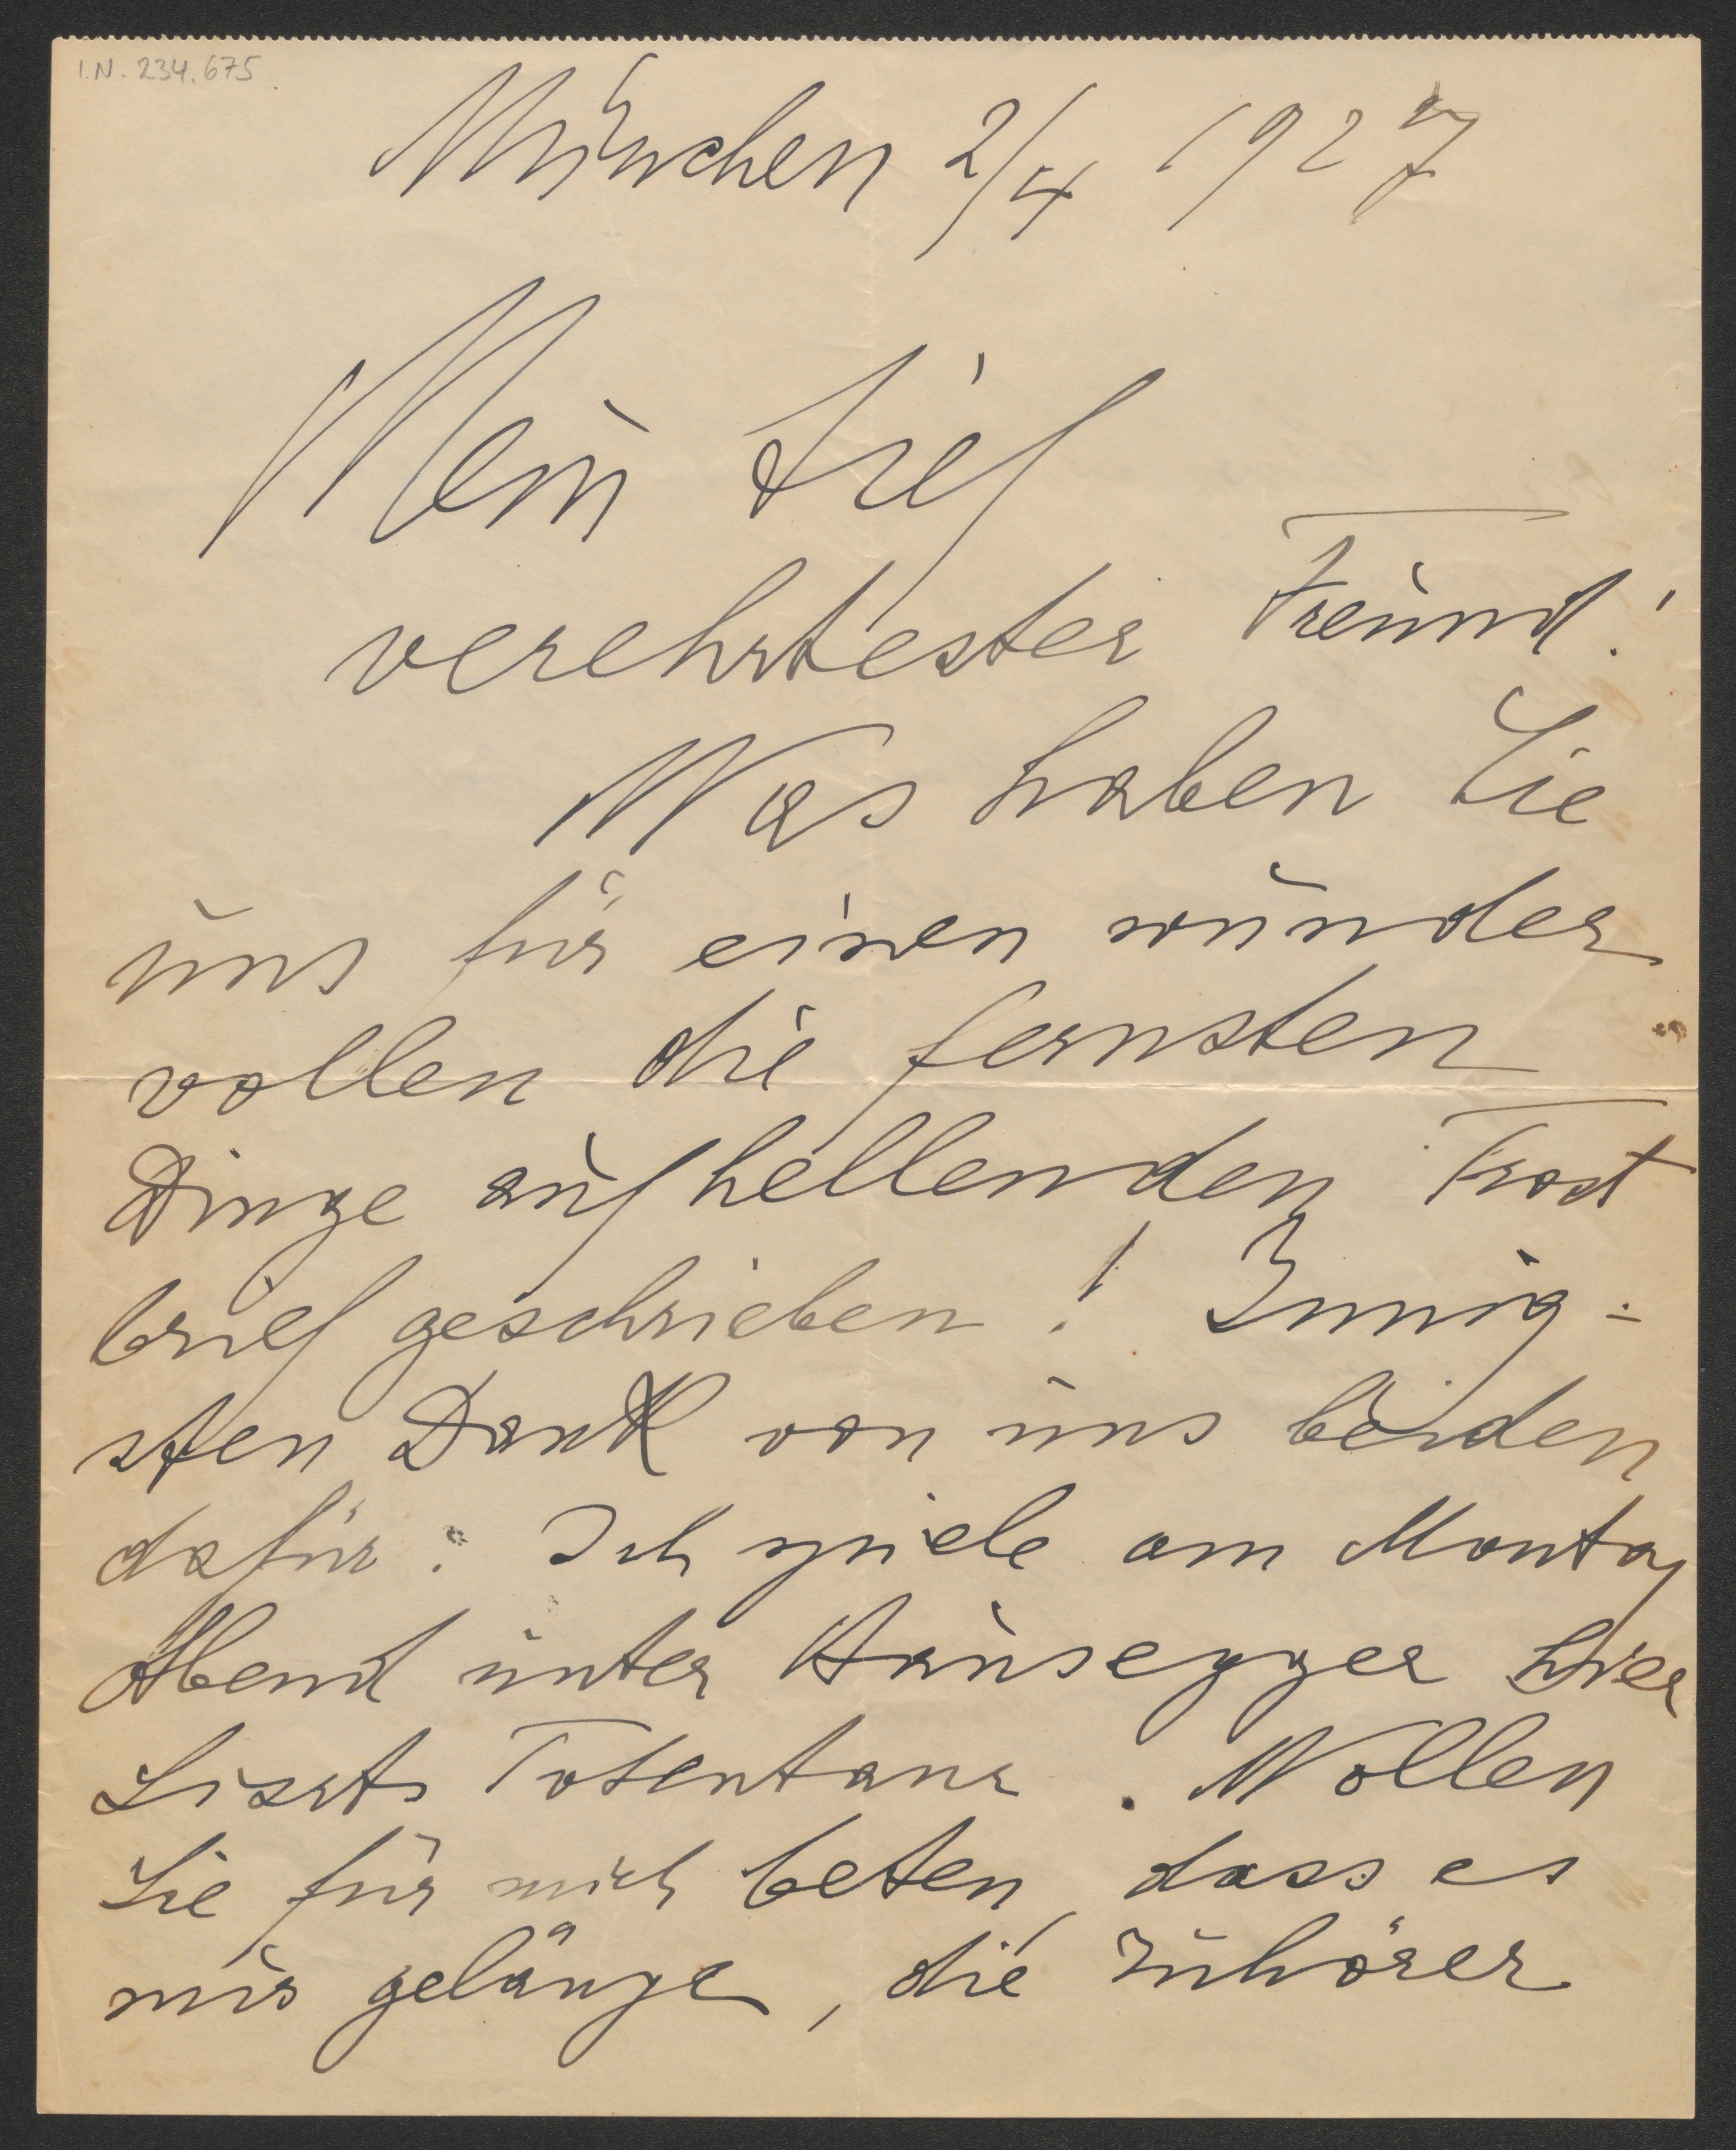 I.N. 234.675
München 2/4 1927
Mein tief
verehrtester Freund!
Was haben Sie
uns für einen wunder
vollen die fernsten
Dinge aufhellenden Trost
brief geschrieben! Innig=
sten Dank von uns beiden
dafür. Ich spiele am Montag
Abend unter Hausegger hier
Liszts Totentanz. Wollen
Sie für mich beten, dass es
mir gelänge, die Zuhörer